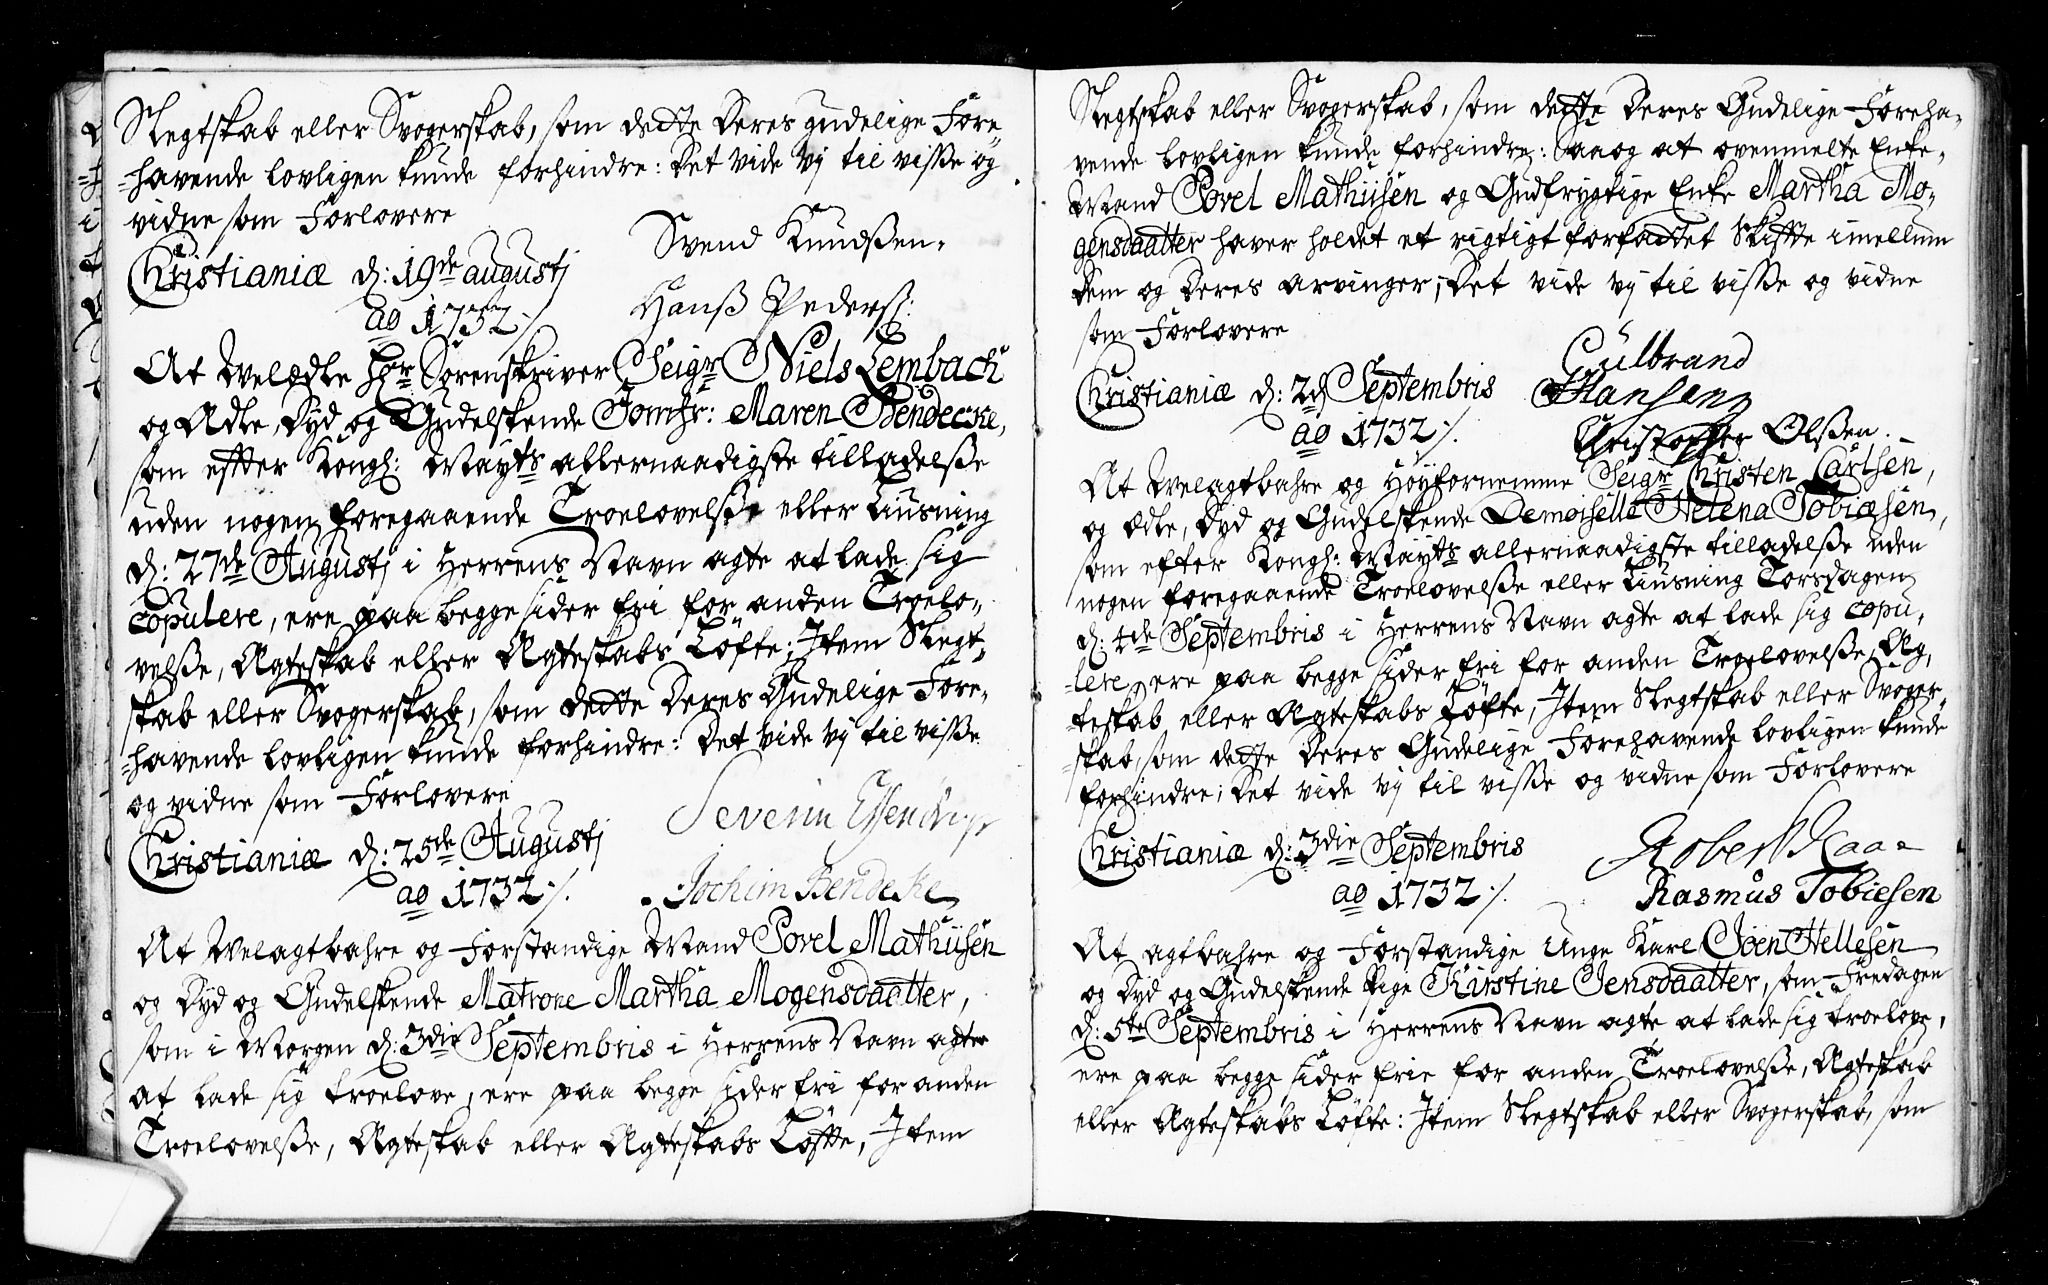 Slegtskab eller Svogerskab, som dette Deres gudelige Fore¬
-havende lovligen kunde forhindre: Det vide vj til visse og
vidne som Forlovere
Svend Knudssen.
Christianiæ d: 19de augustj
Hanss Pederss:
ao 1732 ./.
At Welædle Hr Sorenskriver Seigr Niels Lembach
og Ædle, Dyd og Gudelskende Jomfr: Maren Bendecke,
som effter Kongl: Mayts allernaadigste tilladelsse
uden nogen foregaaende Troelovelsse eller Liusning
d: 27de Augustj i Herrens Navn agte at lade sig
copulere, ere paa begge sider fri for anden Troelo¬
velsse, Ægteskab eller Ægteskabs Løfte; Item Slegt¬
skab eller Svogerskab, som dette Deres Gudelige Fore¬
-havende lovligen kunde forhindre: Det vide vj til visse
og vidne som Forlovere
Severin
Christianiæ d: 25de Augustj
ao 1732 ./.
Jochim Bendeke
At Welagtbahre og Forstandige Mand Povel Mathiisen
og Dyd og Gudelskende Matrone Martha Mogensdaatter,
som i Morgen d: 3die Septembris i Herrens Navn agter
at lade sig troelove, ere paa begge sider fri for anden
Troelovelsse, Ægteskab eller Ægteskabs Løffte, Item
Slegtskab eller Svogerskab, som dette Deres Gudelige Foreha¬
vende lovligen kunde forhindre: Saa og at ovenmelte Enke¬
Mand Povel Mathiisen og Gudfrygtige Enke Martha Mo¬
gensdaatter haver holdet et rigtigt forfattet Skiffte imellum
Dem og Deres arvinger; Det vide vj til visse og vidne
som Forlovere
Gulbrand
Christianiæ d: 2d Septembris
Hansen
ao 1732 ./.
Christopher Olssen.
At Welagtbahre og Høyfornemme Seigr Christen Carlsen,
og ædle, Dyd og Gudelskende Demoiselle Helena Tobiæsen,
som efter Kongl: Mayts allernaadigste tilladelsse uden
nogen foregaaende Troelovelsse eller Liusning Torsdagen
d: 4de Septembris i Herrens Navn agte at lade sig copu¬
-lere, ere paa begge sider fri for anden Troelovelsse, Æg¬
teskab eller Ægteskabs Løfte, Item Slegtskab eller Svoger¬
-skab, som dette Deres Gudelige Forehavende lovligen kunde
forhindre; Det vide vj til visse og vidne som Forlovere
Christianiæ d: 3die Septembris
Robert
ao 1732 ./.
Rasmus Tobiesen
At agtbahre og Forstandige Unge Karl Joen Hellesen
og Dyd og Gudelskende Pige Kirstine Jensdaatter, som Fredagen
d: 5te Septembris i Herrens Navn agte at lade sig troelove,
ere paa begge sider frie for anden Troelovelsse, Ægteskab
eller Ægteskabs Løfte: Item Slegtskab eller Svogerskab, som